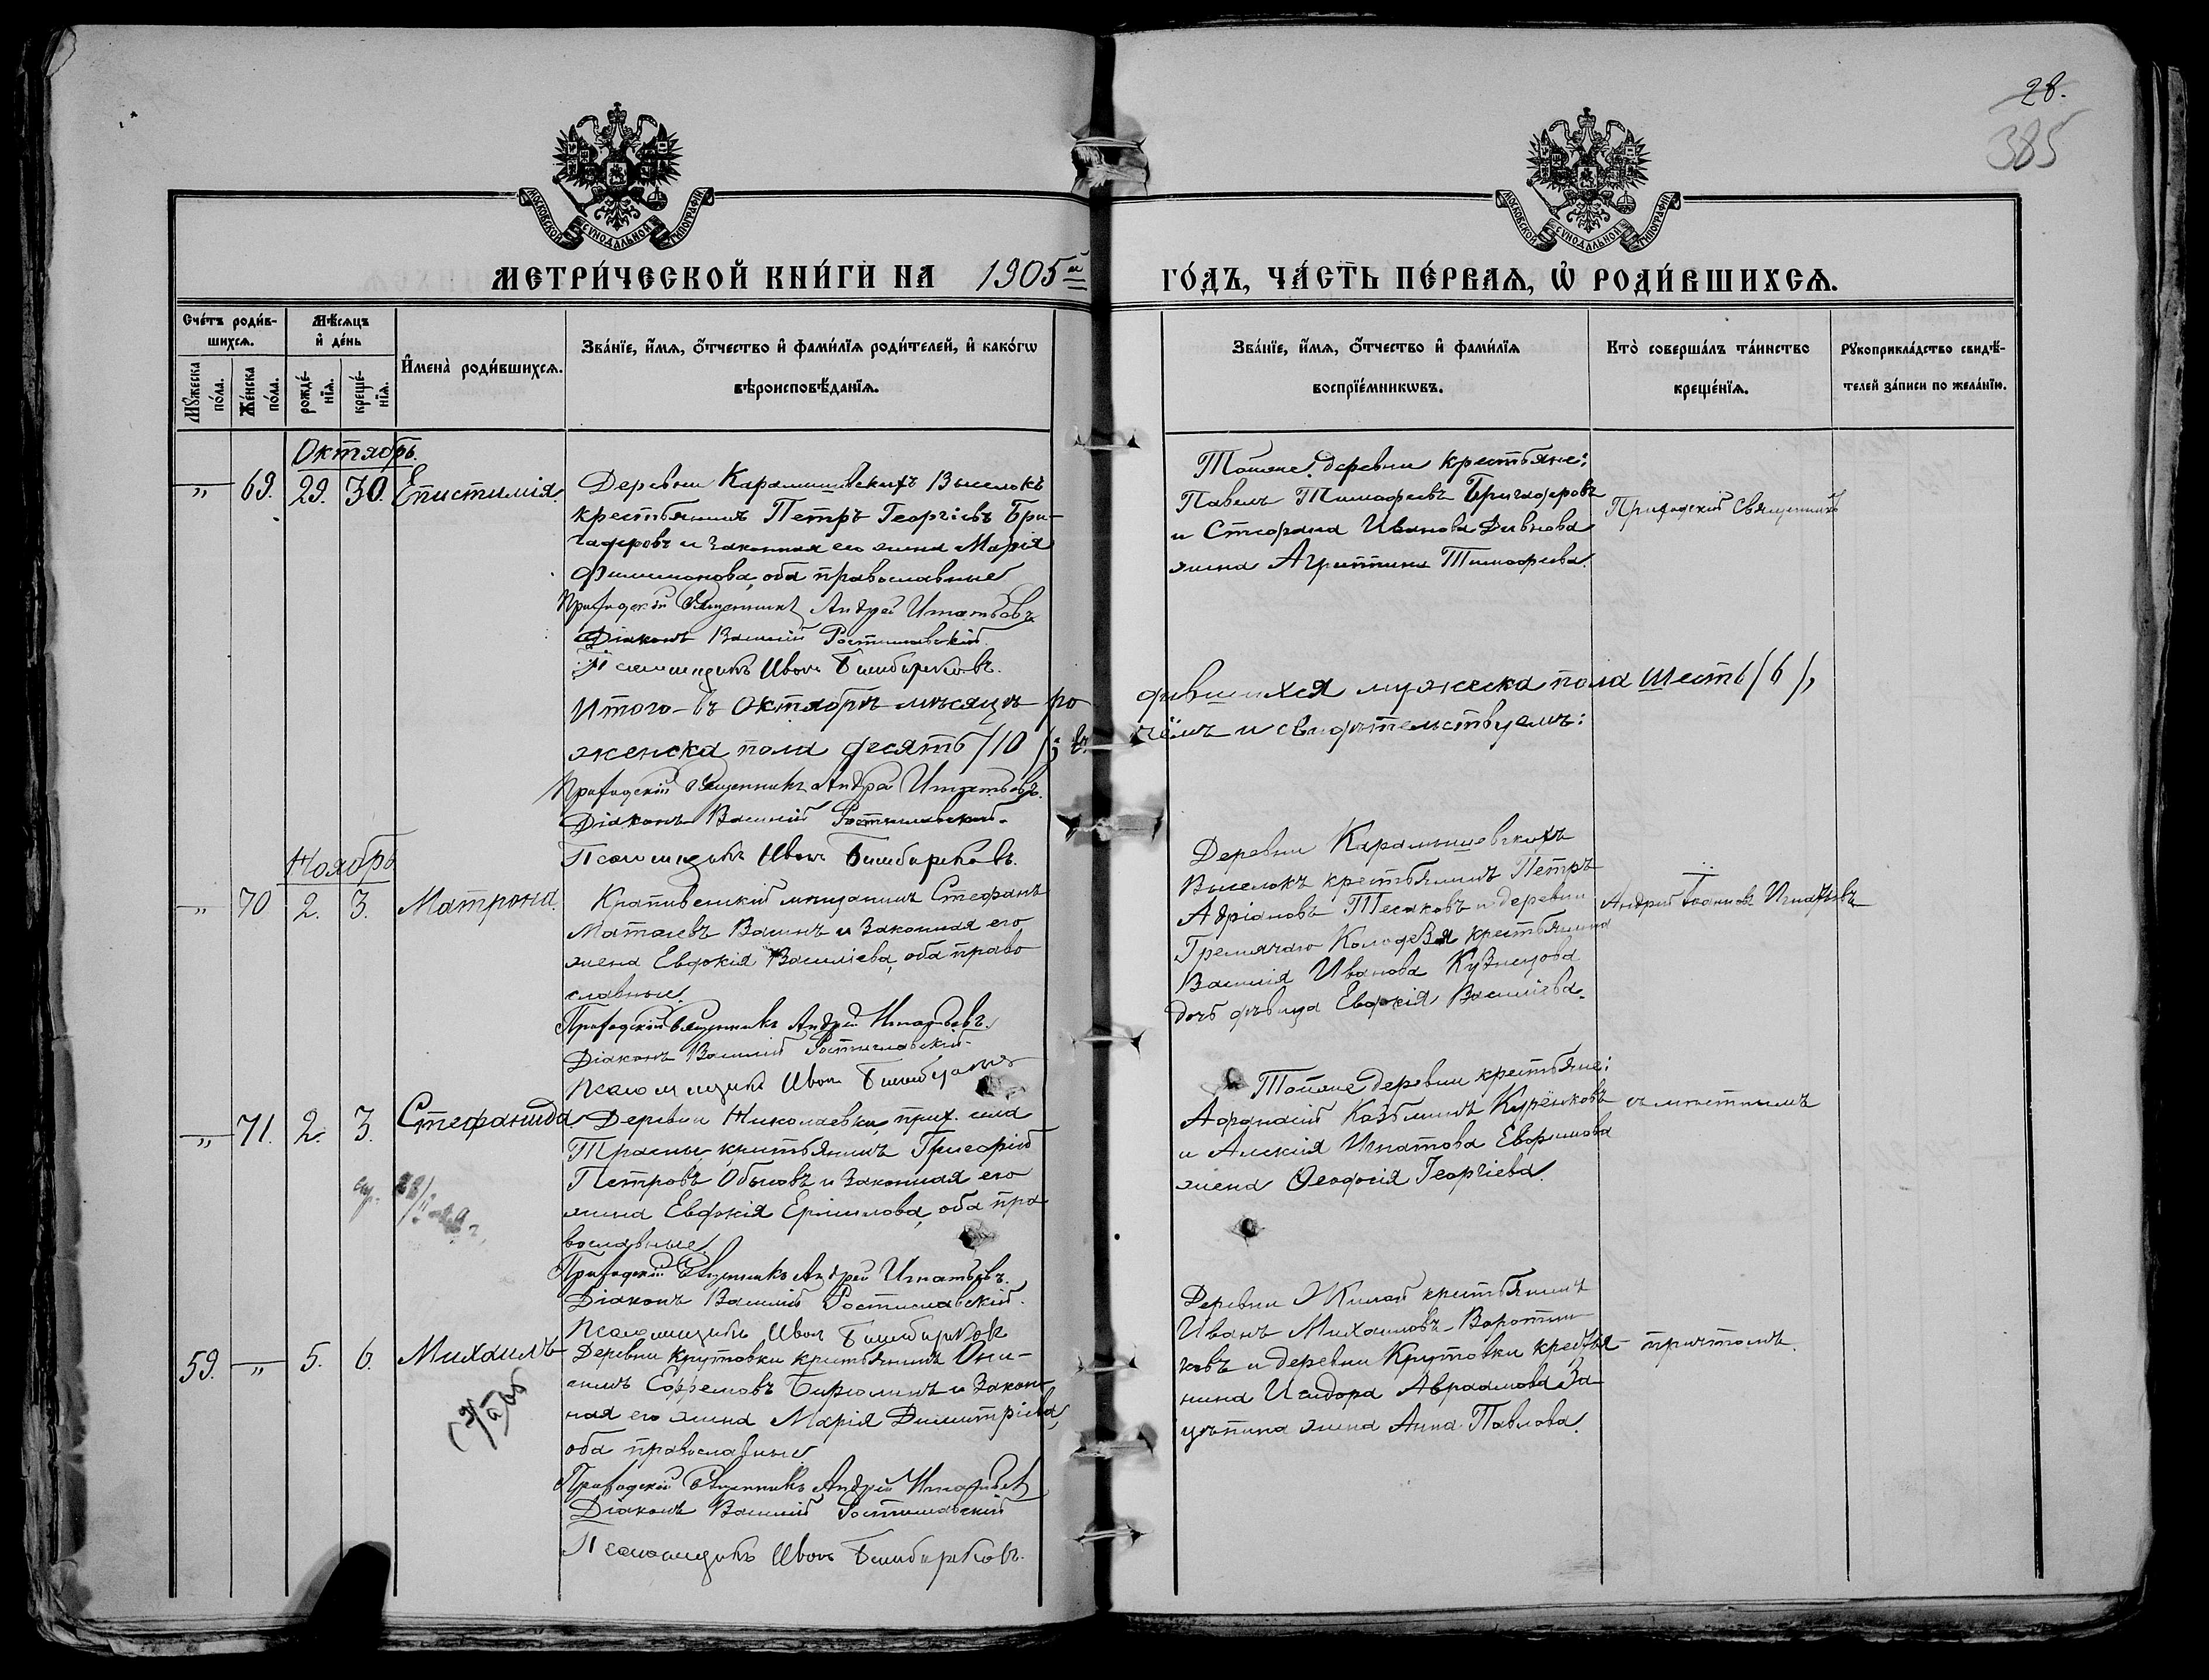 28.
385
МОСКОВСКОЙ СУНОДАЛЬНОЙ ТИПОГРАФІИ
МОСКОВСКОЙ СУНОДАЛЬНОЙ ТИПОГРАФІИ
МЕТРИ́ЧЕСКОЙ КНИ́ГИ НА 1905й ГО́ДЪ, ЧА́СТЬ ПЕ́РВАѦ, Ѡ҆ РОДИ́ВШИХСѦ.
Сче́тъ роди́в-
шихсѧ.
Мѣ́сѧцъ
и҆ де́нь
Мꙋ́жеска
по́ла.
Же́нска
по́ла.
рожде́-
нїѧ.
креще́-
нїѧ.
И҆мена̀ роди́вшихсѧ.
Зва́нїе, и҆́мѧ, ѻ҆́тчество и҆ фами́лїѧ роди́телей, и҆ како́гѡ
вѣроисповѣ́данїѧ.
Зва́нїе, и҆́мѧ, ѻ҆́тчество и҆ фами́лїѧ
воспрїе́мникѡвъ.
Кто̀ соверша́лъ та́инство
креще́нїѧ.
Рꙋкоприкла́дство свидѣ́-
телей за́писи по жела́нїю.
Октябрь.
" 69. 29. 30. Епистимія.
Деревни Карамышевскихъ Выселокъ
крестьянинъ Петръ Георгіевъ Бри-
гадеровъ и законная его жена Марія
Филимонова, оба православные
Приходскій Священникъ Андрей Игнатьевъ
Діаконъ Василій Ростиславскій
Псаломщикъ Иванъ
Тойже деревни крестьяне:
Павелъ Тимофеевъ Бригадеровъ
и Стефана Иванова
жена Агриппина Тимофеева
Приходскій Священникъ
Итого въ Октябрѣ мѣсяцѣ ро
дившихся мужеска пола шесть (6),
женска пола десять (10); въ
чёмъ и свидѣтельствуемъ:
Приходскій Священникъ Андрей Игнатьевъ.
Діаконъ Василій Ростиславскій.
Псаломщикъ Иванъ
Ноябрь
" 70 2. 3. Матрона.
Крапивенскій мѣщанинъ Стефанъ
Матвѣевъ Васинъ и законная его
жена Евдокія Василіева, оба право
славные.
Приходскій Священникъ Андрей Игнатьевъ.
Діаконъ Василій Ростиславскій
Псаломщикъ Иванъ
Деревни Карамышевскихъ
Выселокъ крестьянинъ Петръ
Адріановъ Тесаковъ и деревни
Гремячаго Колодезя крестьянина
Василія Иванова Кузнецова
дочь дѣвица Евдокія Василіева.
Андрей Іоанновъ Игнатьевъ
" 71. 2. 3. Стефанида
Деревни Николаевки, прих. села
крестьянинъ Григорій
Петровъ Обысовъ и законная его
жена Евдокія Ермилова, оба пра
вославные.
Приходскій Священникъ Андрей Игнатьевъ.
Діаконъ Василій Ростиславскій.
Псаломщикъ Иванъ
Тойже деревни крестьяне:
Афанасій Козьминъ Курёнковъ
и Алексія Игнатова Ефимова
жена Ѳеодосія Георгіева.
съ мѣстнымъ
59. " 5. 6. Михаилъ
Деревни Крутовки крестьянинъ Они-
симъ Ефремовъ Бирюлинъ и закон-
ная его жена Марія Димитріева,
оба православные
Приходскій Священникъ Андрей Игнатьевъ
Діаконъ Василій Ростиславскій
Псаломщикъ Иванъ
Деревни Жилой крестьянинъ
Иванъ Михаиловъ Воротни-
ковъ и деревни Крутовки крестья-
нина Исидора Авраамова За-
цѣпина жена Анна Павлова.
причтомъ.